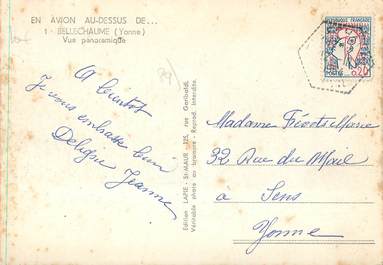 EN AVION AU-DESSUS DE...
1 - BELLECHAUME (Yonne)
Vue panoramique
A bientôt
Je vous embrasse bien
Deligne Jeanne
Edition LAPIE - St-MAUR 125, rue Garibaldi
Véritable photo au bromure - Reprod. Interdite.
REPUBLIQUE FRANÇAISE
POSTES
0,20
Madame
32 Rue du Mail
à Sens
Yonne